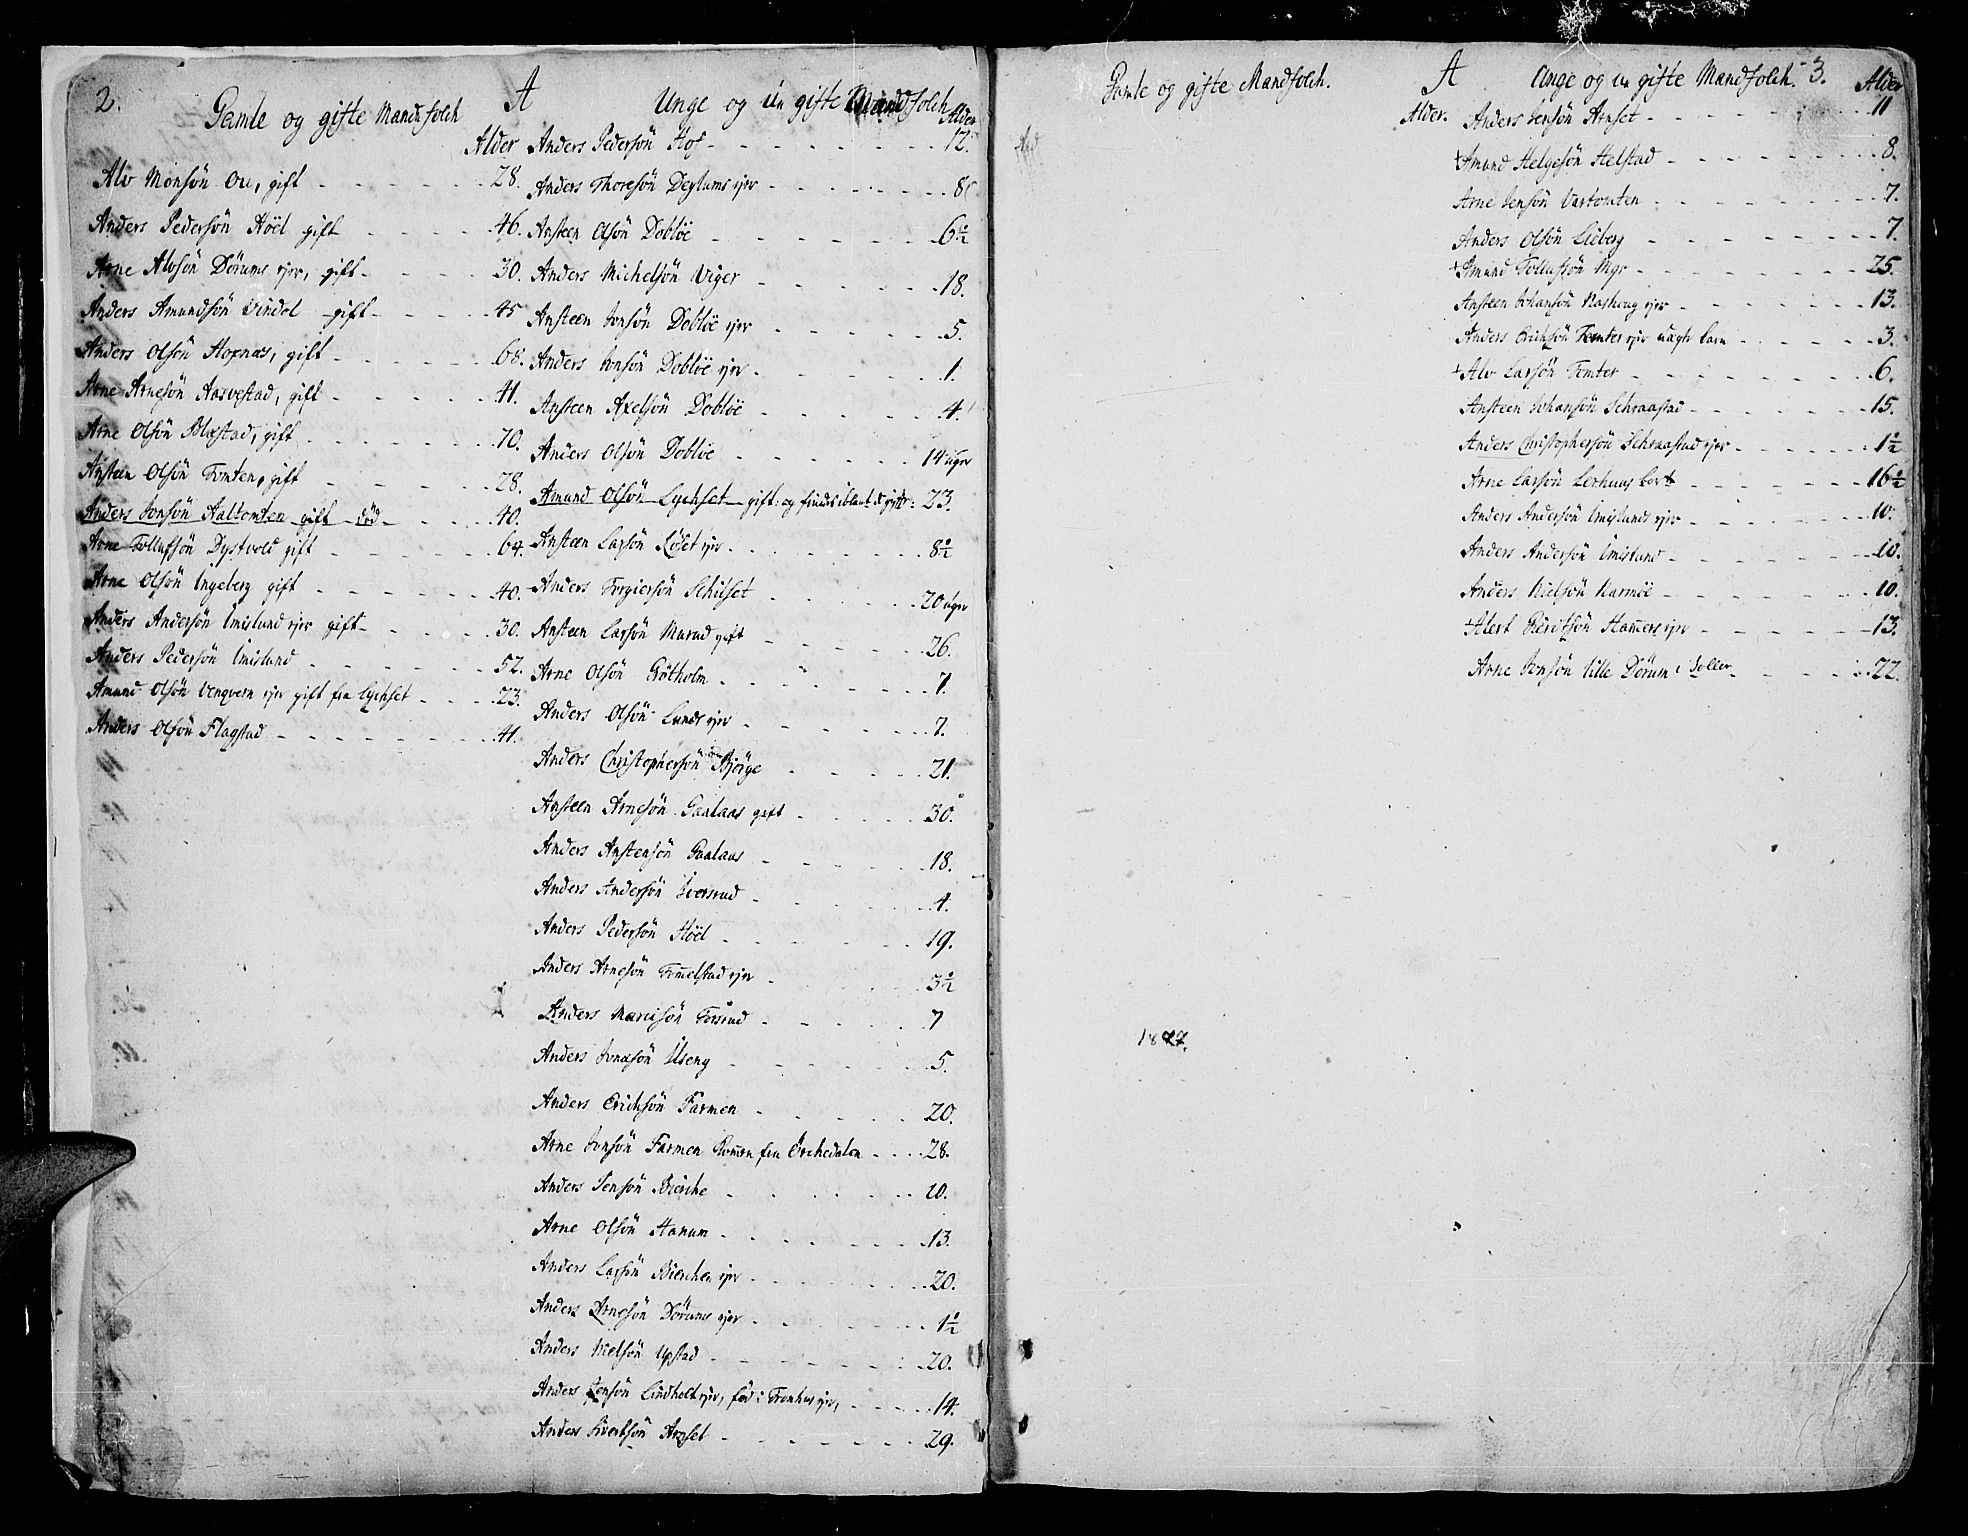 2.
Gamle og gifte Mandfolch
A
Alder
Alv Monsön Ou, gift 28.
Anders Pedersön Höel gift 46.
Arne Alvsön Dörums ejer, gift 30.
Anders Amundsön Vindol gift 45
Anders Olsön Hornæs, gift 68.
Arne Arnesön Aasvestad, gift 41.
Arne Olsön Blæstad, gift 70.
Ansteen Olsön Tomten, gift 28.
Anders Jonsön Aaltomten gift död 40.
Arne Tollufsön Dystvold gift 64.
Arne Olsön Ingeberg gift 40.
Anders Andersön Imislund ejer gift 30.
Anders Pedersön Imislund 52.
Amund Olsön Vengvern ejer gift fra Lychset 23.
Anders Olsön Flagstad 41.
Unge og Un gifte Mandfolch
Alder
Anders Pedersön Hof 12.
Anders Thoresön Deglums ejer 8
Ansteen Olsön Dobloe 6½
Anders Michelsön Viger 18.
Ansteen Jonsön Dobloe ejer 5.
Anders Jonsön Dobloe ejer 1.
Ansteen Axelsön Dobloe 4
Anders Olsön Dobloe 14 uger
Amund Olsön Lychset gift og findes iblant de gifte 23.
Ansteen Larsön Röset ejer 8½
Anders Torgiersön Schilset 20 uger
Ansteen Larsön Marud gift 26.
Arne Olsön Grötholm 7.
Anders Olsön Lunds ejer 7.
Anders Christophersön Bjørge 21.
Ansteen Arnesön Gaalaas gift 30.
Anders Anstensön Gaalaas 18.
Anders Andersön Iversrud 4.
Anders Pedersön Höel 19.
Anders Arnesön Tomelstad ejer 3½
Anders Marcisön Torsrud 7
Anders Jonasön Useng 5.
Anders Erichsön Farmen 20.
Arne Jonsön Farmen kommen fra Orchedalen 28.
Anders Jensön Bierche 10.
Arne Olsön Hanum 13.
Anders Larsön Bierchen ejer 20.
Anders Arnesön Dörums ejer 1½
Anders Nielsön Upstad 20.
Anders Jensön Lindholt ejer, föd i Tronhus ejer, 14.
Anders Sivertsön Arnset 29.
Gamle og gifte Mandfolch.
Alder.
1877.
A
Unge og un gifte Mandfolch.
3.
Alder
Anders Jensön Arnset 11
+Amund Helgesön Helstad 8.
Arne Jensön Vartomten 7.
Anders Olsön Lieberg 7.
+Amund Tollufsön Mgr 25.
Ansteen Johansön Kashoug ejer 13.
Anders Erichsön Tomter ejer uægte barn 3.
+Alv Larsön Tomter 6.
Ansteen Johansön Schraastad 15.
Anders Christophersön Schraastad ejer 1½
Arne Larsön Lerhuus bort 16½
Anders Andersön Imislund ejer 10.
Anders Andersön Imislund 10.
Anders Nielsön Narmöe 10.
+Alert Sivertsön Hamers ejer 13.
Arne Jonsön lille Dörum 22.